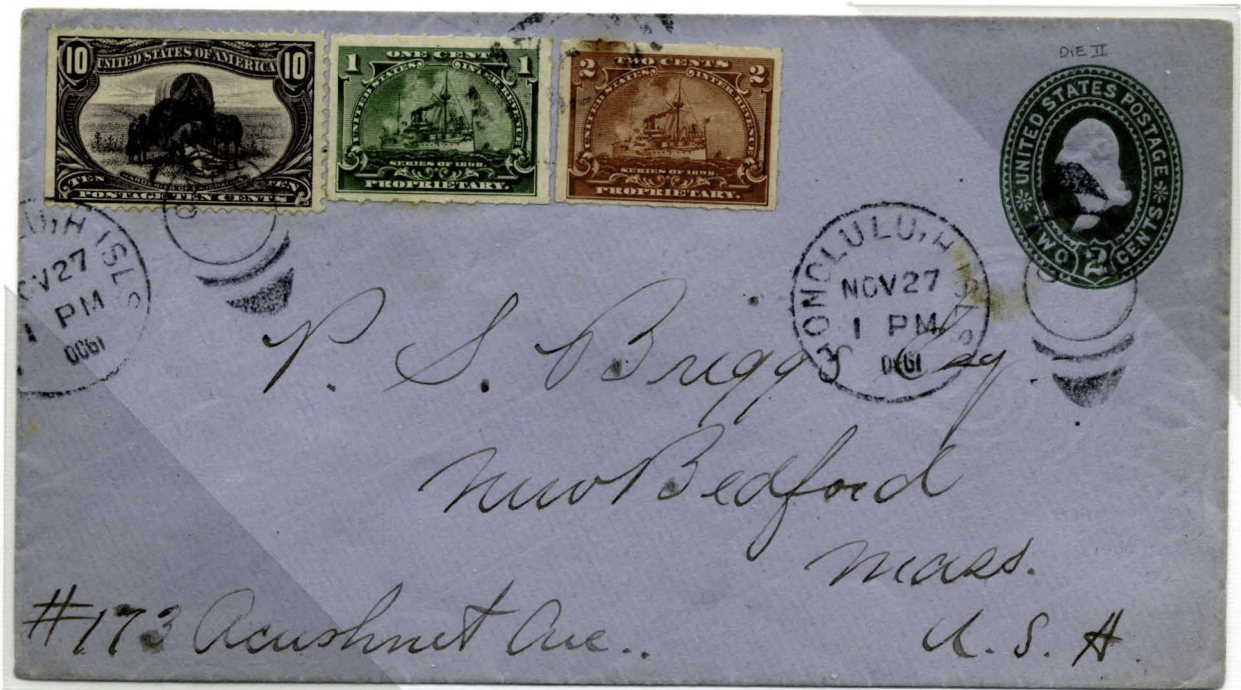 DIE II
10 UNITED STATES OF AMERICA 10
TEN TEN
POSTAGE TEN CENTS
ONE CENT
1 UNITED STATES INTER. REVENUE 1
SERIES OF 1898
PROPRIETARY.
TWO CENTS
2 UNITED STATES INTER. REVENUE 2
SERIES OF 1898
PROPRIETARY.
UNITED STATES POSTAGE
TWO 2 CENTS
LU, H ISLS
OV 27
1 PM
HONOLULU, H ISLS
NOV 27
1 PM
P. S. Briggs Esq.
New Bedford
Mass.
#173 Acushnet Ave..
U. S. A.